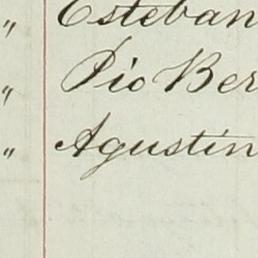 " Esteban
" Pio Ber
" Agustin